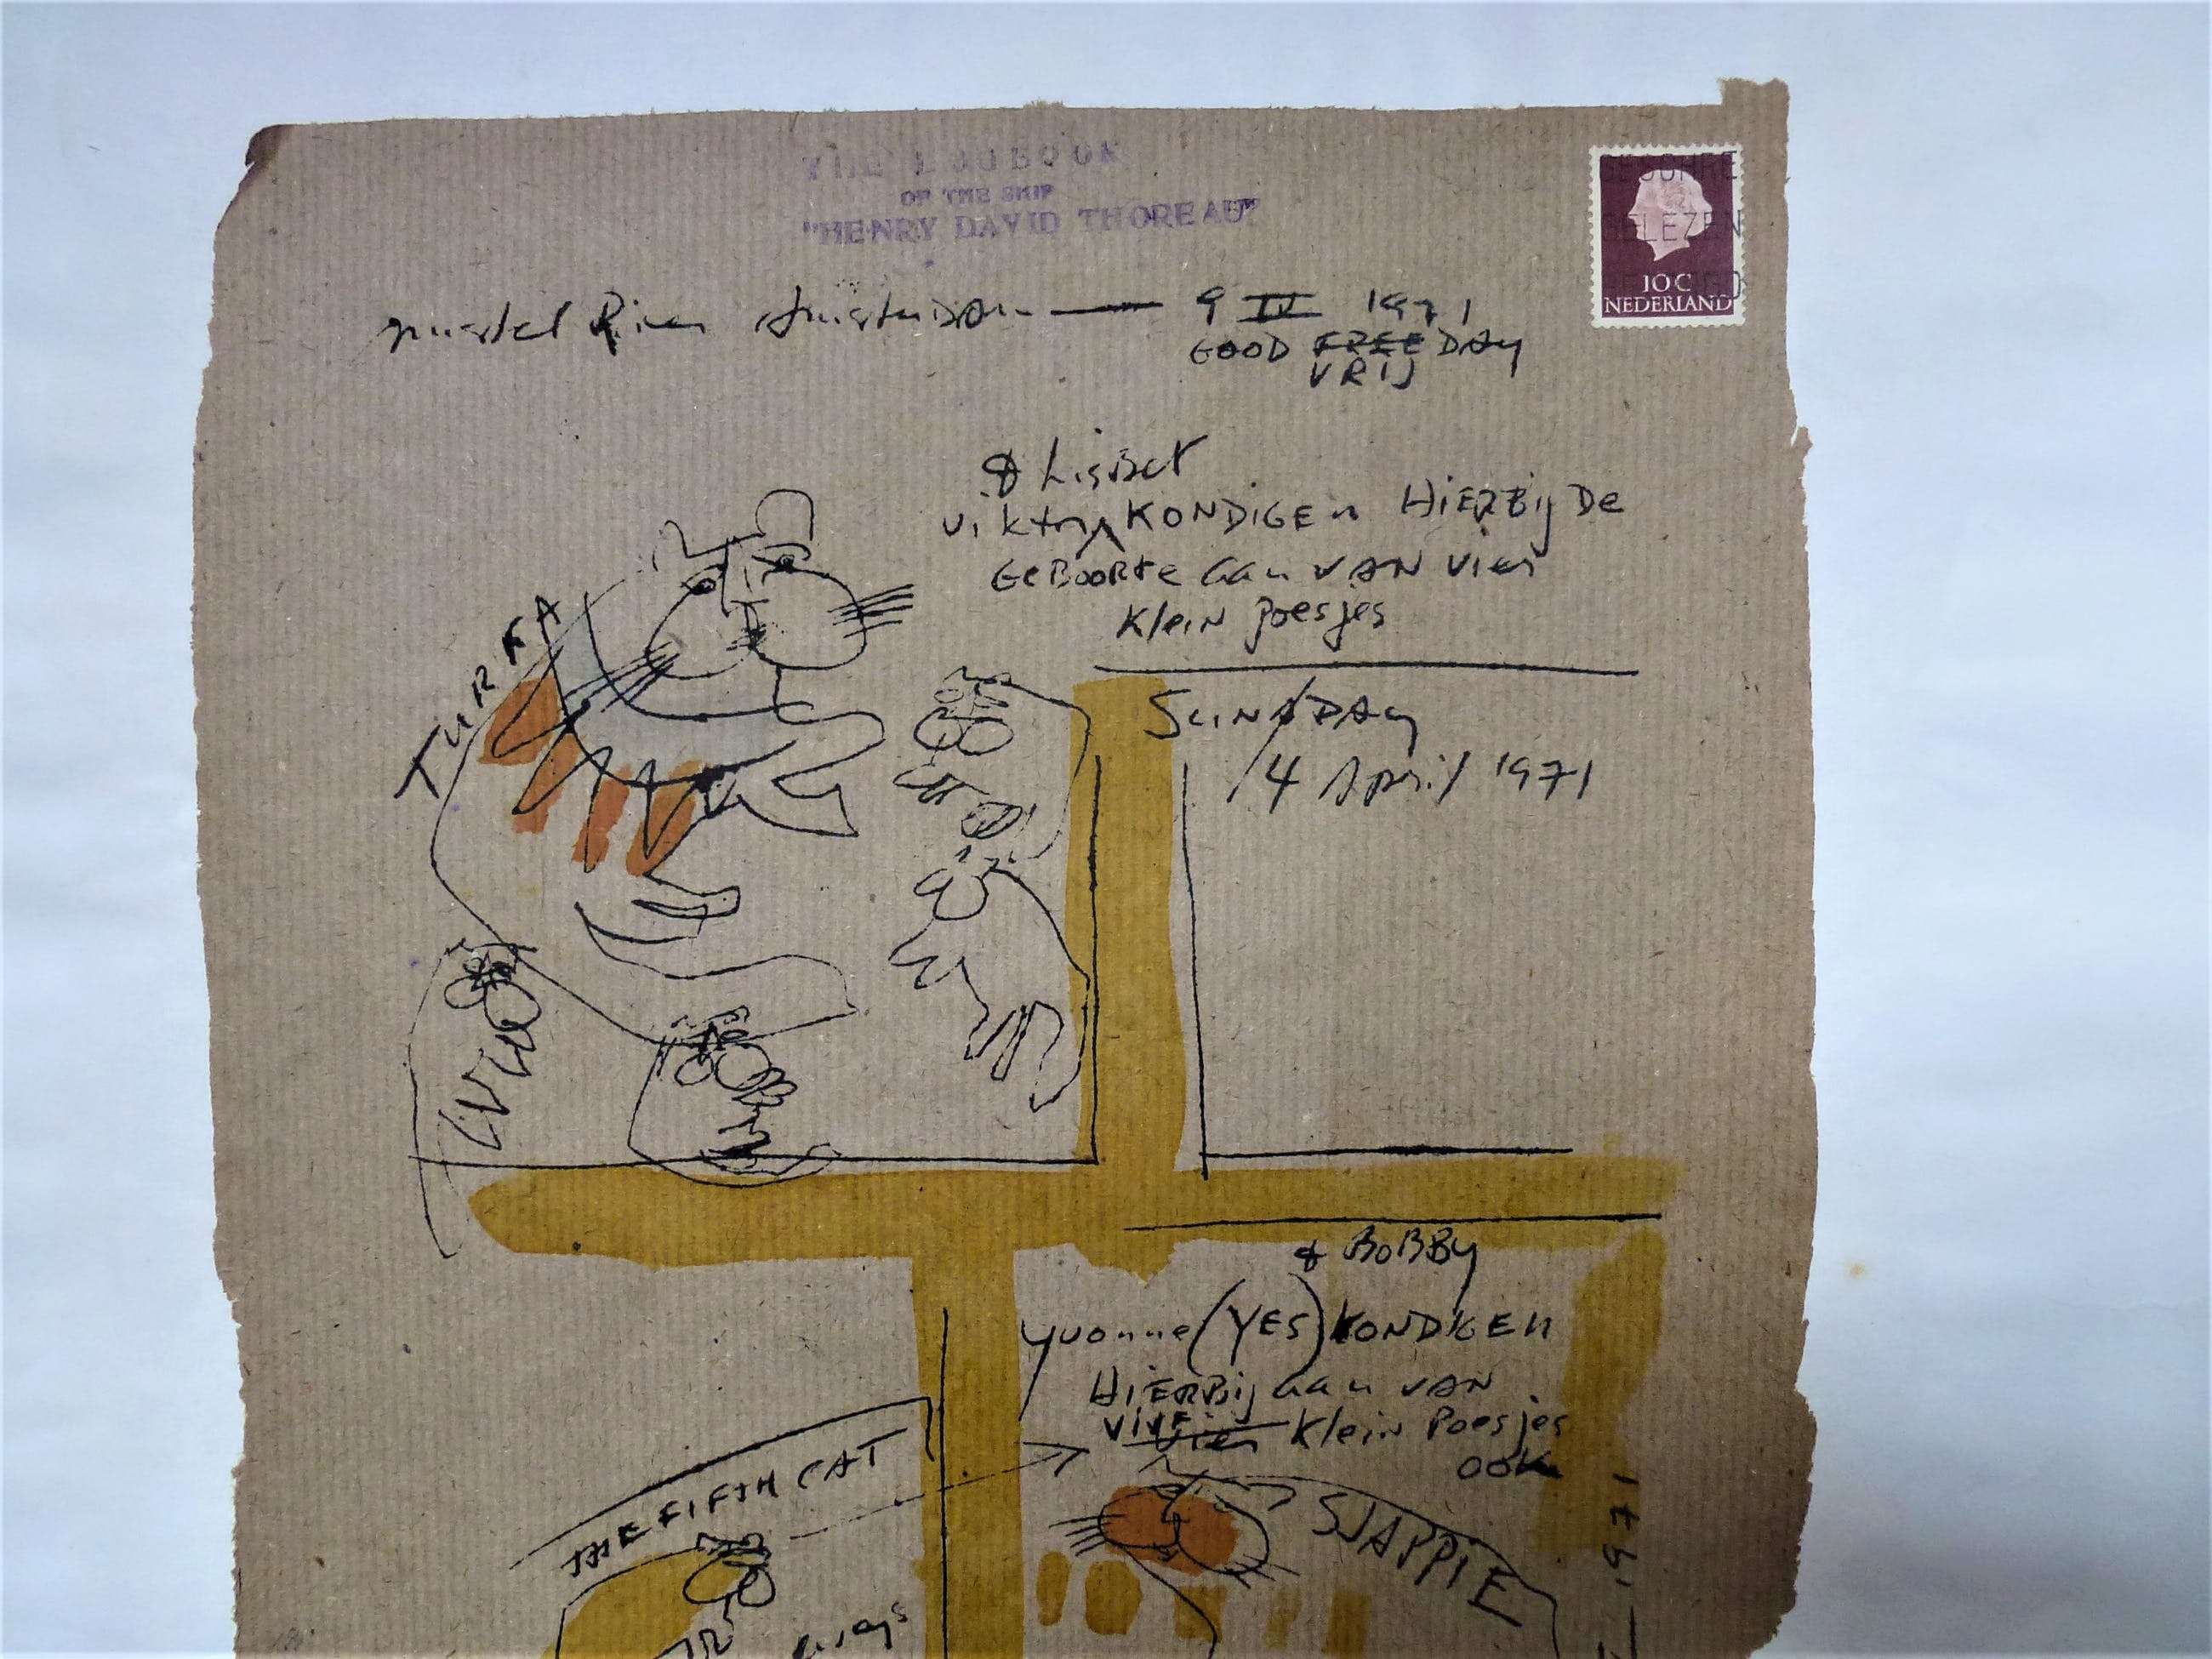 THE LOGBOOK
OF THE SHIP
"HENRY DAVID THOREAU"
GELEZEN
10 C
NEDERLAND
Amstel River Amsterdam — 9 IV 1971
GOOD FREE DAY
VRIJ
& LisBet
Viktor KONDIGEN HIERBIJ DE
GEBOORTE aan VAN Vier
Klein poesjes
TURKA
SUNDAY
4 April 1971
& BOBBY
Yvonne (YES) KONDIGEN
HIERBIJ aan VAN
VIVF Vier Klein Poesjes
OOK
THE FIFTH CAT
SJAPPIE
1971